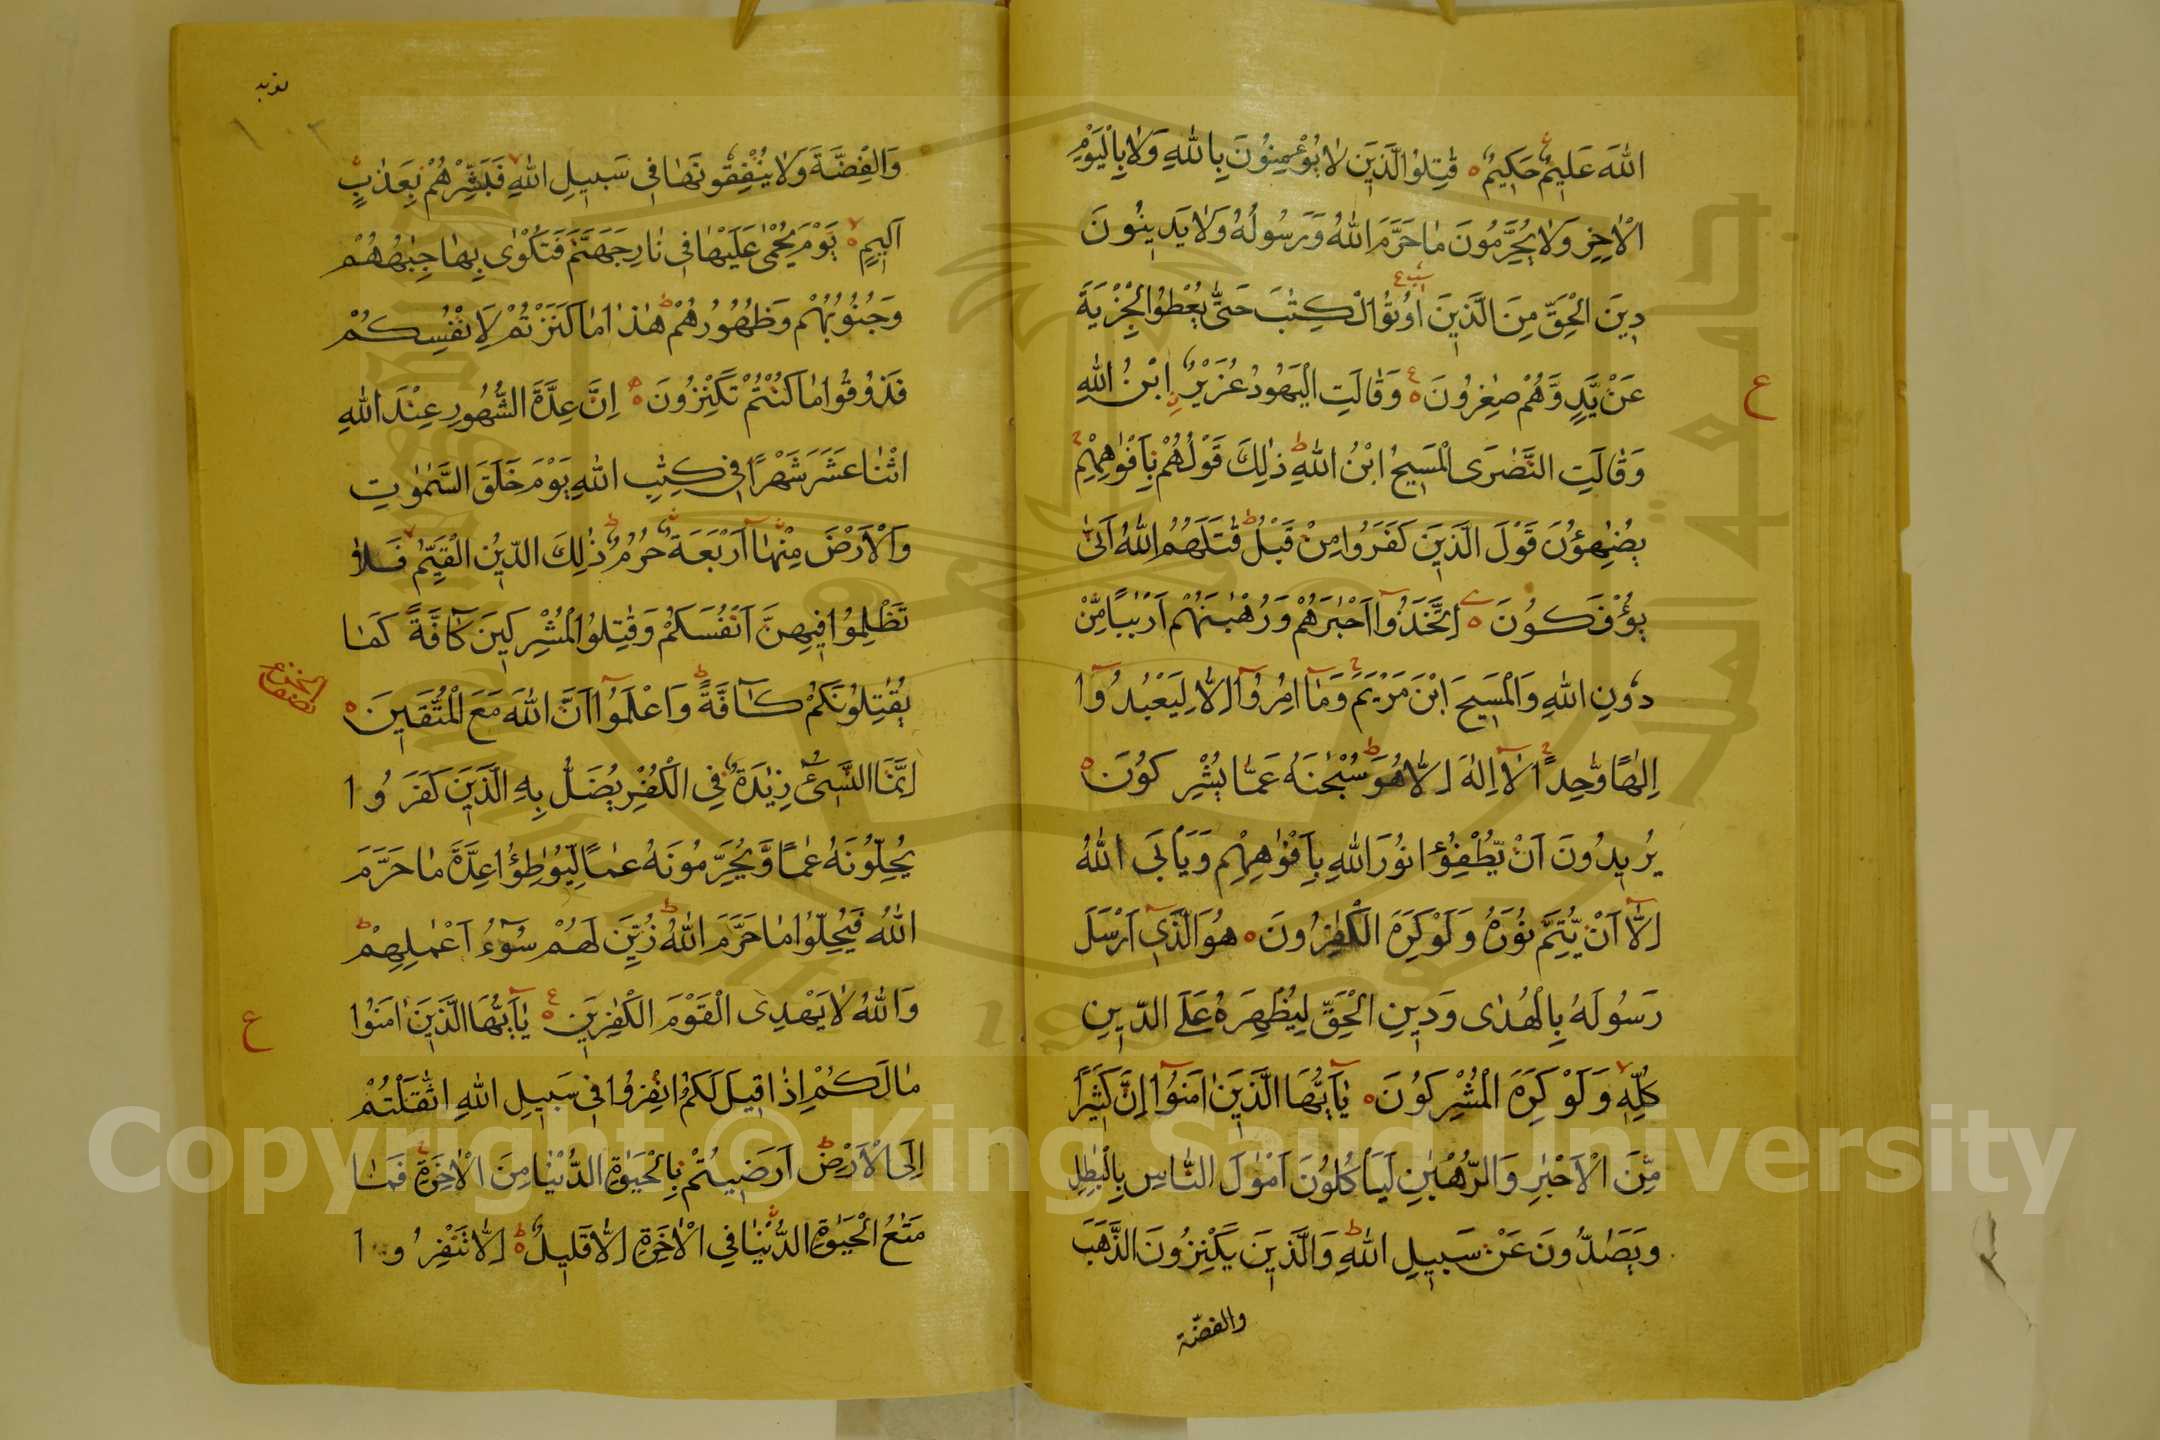 اللهَ عَلِيمٌ حَكِيمٌ ه قٰتِلُوا الَّذِينَ لَا يُؤْمِنُونَ بِاللهِ وَلَا بِالْيَوْمِ
الْاٰخِرِ وَلَا يُحَرِّمُونَ مَا حَرَّمَ اللهُ وَرَسُولُهُ وَلَا يَدِينُونَ
دِينَ الْحَقِّ مِنَ الَّذِينَ اُوتُوا الْكِتٰبَ حَتّٰى يُعْطُوا الْجِزْيَةَ
عَنْ يَّدٍ وَّهُمْ صٰغِرُونَ ه وَقَالَتِ الْيَهُودُ عُزَيْرٌ ابْنُ اللهِ
ع
وَقَالَتِ النَّصٰرَى الْمَسِيحُ ابْنُ اللهِ ط ذٰلِكَ قَوْلُهُمْ بِاَفْوٰهِهِمْ
يُضٰهِؤُنَ قَوْلَ الَّذِينَ كَفَرُوا مِنْ قَبْلُ ط قٰتَلَهُمُ اللهُ اَنّٰى
يُؤْفَكُونَ ه اِتَّخَذُوا اَحْبٰرَهُمْ وَرُهْبٰنَهُمْ اَرْبٰبًا مِّنْ
دُونِ اللهِ وَالْمَسِيحَ ابْنَ مَرْيَمَ وَمَآ اُمِرُوآ اِلَّا لِيَعْبُدُوآ
اِلٰهًا وّٰحِدًا لَآ اِلٰهَ اِلَّا هُوَ ط سُبْحٰنَهُ عَمَّا يُشْرِكُونَ ه
يُرِيدُونَ اَنْ يُّطْفِؤُا نُورَ اللهِ بِاَفْوٰهِهِمْ وَيَاْبَى اللهُ
اِلَّآ اَنْ يُّتِمَّ نُورَهُ وَلَوْ كَرِهَ الْكٰفِرُونَ ه هُوَ الَّذِي اَرْسَلَ
رَسُولَهُ بِالْهُدٰى وَدِينِ الْحَقِّ لِيُظْهِرَهُ عَلَى الدِّينِ
كُلِّهِ وَلَوْ كَرِهَ الْمُشْرِكُونَ ه يٰآَيُّهَا الَّذِينَ اٰمَنُوآ اِنَّ كَثِيرًا
مِّنَ الْاَحْبٰرِ وَالرُّهْبٰنِ لَيَاْكُلُونَ اَمْوٰلَ النَّاسِ بِالْبٰطِلِ
وَيَصُدُّونَ عَنْ سَبِيلِ اللهِ ط وَالَّذِينَ يَكْنِزُونَ الذَّهَبَ
والفضّة
وَالْفِضَّةَ وَلَا يُنْفِقُونَهَا فِي سَبِيلِ اللهِ فَبَشِّرْهُمْ بِعَذٰبٍ
اَلِيمٍ ه يَوْمَ يُحْمٰى عَلَيْهَا فِي نَارِ جَهَنَّمَ فَتُكْوٰى بِهَا جِبٰهُهُمْ
وَجُنُوبُهُمْ وَظُهُورُهُمْ ط هٰذَا مَا كَنَزْتُمْ لِاَنْفُسِكُمْ
فَذُوقُوا مَا كُنْتُمْ تَكْنِزُونَ ه اِنَّ عِدَّةَ الشُّهُورِ عِنْدَ اللهِ
اثْنَا عَشَرَ شَهْرًا فِي كِتٰبِ اللهِ يَوْمَ خَلَقَ السَّمٰوٰتِ
وَالْاَرْضَ مِنْهَآ اَرْبَعَةٌ حُرُمٌ ط ذٰلِكَ الدِّينُ الْقَيِّمُ فَلَا
تَظْلِمُوا فِيهِنَّ اَنْفُسَكُمْ وَقٰتِلُوا الْمُشْرِكِينَ كَآفَّةً كَمَا
يُقٰتِلُونَكُمْ كَآفَّةً ط وَاعْلَمُوآ اَنَّ اللهَ مَعَ الْمُتَّقِينَ ه
اِنَّمَا النَّسِيْٓءُ زِيٰدَةٌ فِي الْكُفْرِ يُضَلُّ بِهِ الَّذِينَ كَفَرُوا
يُحِلُّونَهُ عٰمًا وَّيُحَرِّمُونَهُ عٰمًا لِّيُوٰطِؤُا عِدَّةَ مَا حَرَّمَ
اللهُ فَيُحِلُّوا مَا حَرَّمَ اللهُ ط زُيِّنَ لَهُمْ سُوٓءُ اَعْمٰلِهِمْ ط
وَاللهُ لَا يَهْدِى الْقَوْمَ الْكٰفِرِينَ ه يٰآَيُّهَا الَّذِينَ اٰمَنُوا
ع
مَا لَكُمْ اِذَا قِيلَ لَكُمُ انْفِرُوا فِي سَبِيلِ اللهِ اثَّقَلْتُمْ
اِلَى الْاَرْضِ ط اَرَضِيتُمْ بِالْحَيٰوةِ الدُّنْيَا مِنَ الْاٰخِرَةِ فَمَا
مَتٰعُ الْحَيٰوةِ الدُّنْيَا فِي الْاٰخِرَةِ اِلَّا قَلِيلٌ ه اِلَّا تَنْفِرُوا
جامعة الملك سعود
King Saud University
1957
Copyright © King Saud University